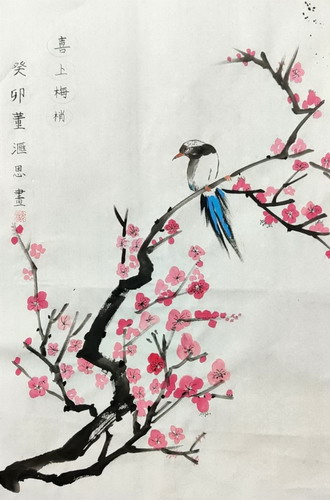 喜上梅梢
癸卯董滙恩畫